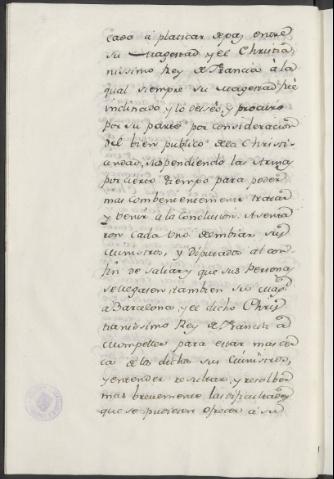 cado á platicar de paz entre
su Magestad y el Christia
nissimo Rey de Francia á la
qual siempre su Magestad fué
inclinado y lo deseó, y procuró
por su parte por consideracion
del bien publico de la Christi
andad, suspendiendo las Armas
por cierto tiempo para poder
mas combenientemente tratar
y benir á la conclusion. Asenta
ron cada uno de embiar sus
Ministros, y Diputados al con
fin de Salsas y que sus Personas
se llegasen tambien su Magd.
a Barcelona, y el dicho Chris
tianissimo Rey de Francia á
Mompeller para estar mas cer
ca de los dichos sus Ministros,
y entender tratar, y resolber
mas brevemente las dificultades
que se pudiesen ofrecer á su